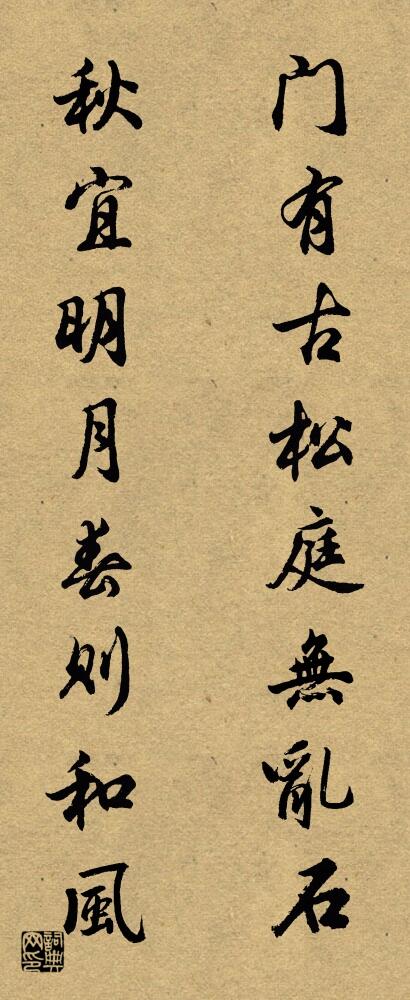 门有古松庭無亂石
秋宜明月春則和風
詞典網印